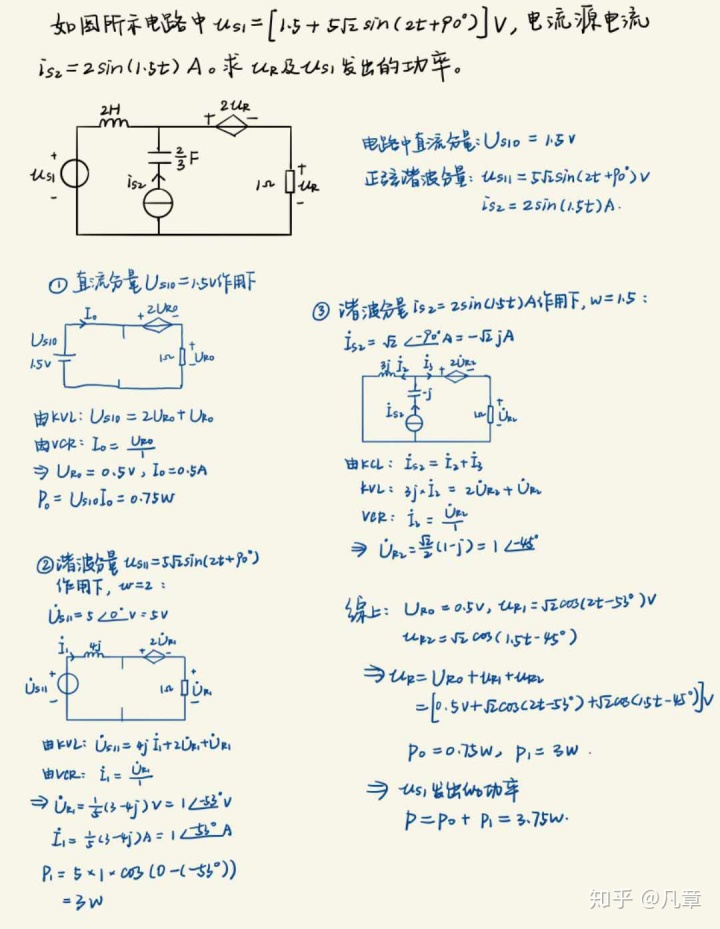 如图所示电路中 uS1=[1.5+5√2 sin(2t+90°)]V,电流源电流
iS2=2sin(1.5t) A。求 uR及uS1发出的功率。
2H
2uR
+ -
2/3 F
iS2
+
uS1
-
1Ω
+
uR
-
电路中直流分量:US10=1.5V
正弦谐波分量:uS11=5√2sin(2t+90°)V
iS2=2sin(1.5t)A.
① 直流分量US10=1.5V作用下
I0
+2UR0-
US10
1.5V
1Ω
+
UR0
-
由KVL:US10=2UR0+UR0
由VCR:I0=UR0/1
⇒ UR0=0.5V,I0=0.5A
P0=US10I0=0.75W
②谐波分量uS11=5√2sin(2t+90°)
作用下,w=2:
U̇S11=5∠0°V=5V
İ1
4j
+2U̇R1-
+
U̇S11
-
1Ω
+
U̇R1
-
由KVL:U̇S11=4jİ1+2U̇R1+U̇R1
由VCR:İ1=U̇R1/1
⇒ U̇R1=1/5(3-4j)V=1∠-53°V
İ1=1/5(3-4j)A=1∠-53°A
P1=5×1×cos(0-(-53°))
=3W
③ 谐波分量iS2=2sin(1.5t)A作用下,w=1.5:
İS2=√2∠-90°A=-√2jA
3j İ2 İ3 +2U̇R2-
-j
İS2
1Ω
+
U̇R2
-
由KCL:İS2=İ2+İ3
KVL:3j·İ2=2U̇R2+U̇R2
VCR:İ3=U̇R2/1
⇒ U̇R2=√2/2(1-j)=1∠-45°
综上:UR0=0.5V,uR1=√2cos(2t-53°)V
uR2=√2cos(1.5t-45°)
⇒uR=UR0+uR1+uR2
=[0.5V+√2cos(2t-53°)+√2cos(1.5t-45°)]V
P0=0.75W,P1=3W.
⇒ uS1发出的功率
P=P0+P1=3.75W.
知乎 @凡章